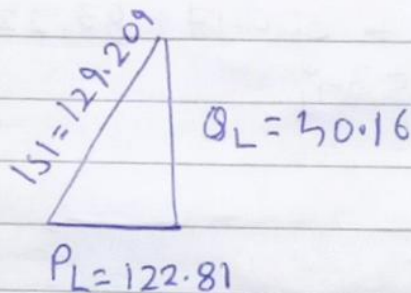 |S| = 129.209
QL = 40.16
PL = 122.81